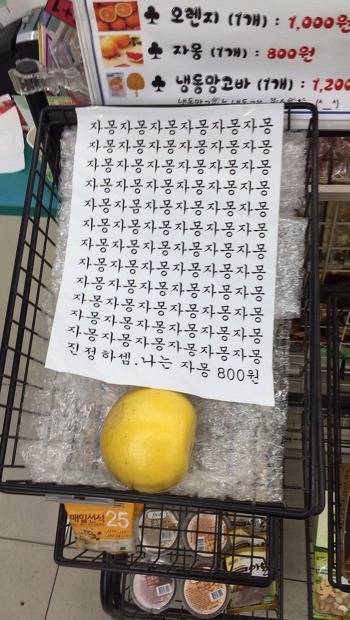 ♣ 오렌지 (1개) : 1,000원
♣ 자몽 (1개) : 800원
♣ 냉동망코바 (1개) : 1,200
자몽자몽자몽자몽자몽자몽
자몽자몽자몽자몽자몽자몽
자몽자몽자몽자몽자몽자몽
자몽자몽자몽자몽자몽자몽
자몽자몸자몽자몽자몽자몽
자몽자몽자몽자몽자몽자몽
자몽자몽자몽자몽자몽자몽
자몽자몽자몽자몽자몽자몽
자몽자몽자몽자몽자몽자몽
자몽자몽자몽자몽자몽자몽
자몽자몽자몽자몽자몽자몽
자몽자몽자몽자몽자몽자몽
진정하셈.나는 자몽 800원
매일선선
25